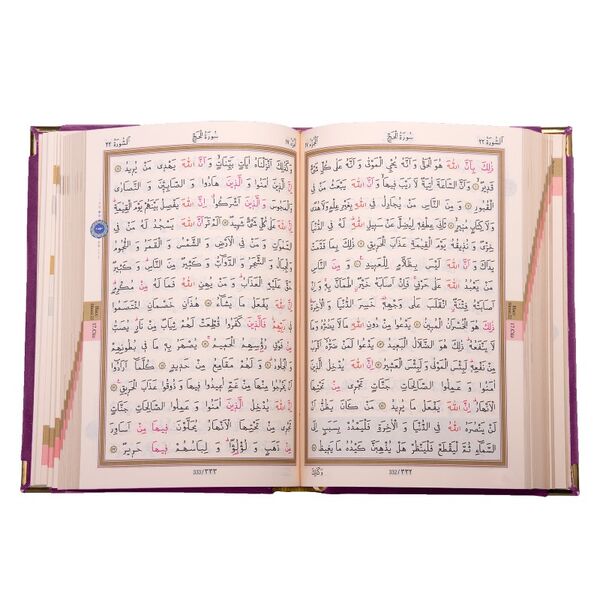 اَلسُّورَةُ ٢٢
سُورَةُ الْحَجِّ
ذٰلِكَ بِاَنَّ اللّٰهَ هُوَ الْحَقُّ وَاَنَّهُ يُحْيِ الْمَوْتٰى وَاَنَّهُ عَلٰى كُلِّ شَىْءٍ
قَدِيرٌ ۞ وَاَنَّ السَّاعَةَ اٰتِيَةٌ لَا رَيْبَ فِيهَا وَاَنَّ اللّٰهَ يَبْعَثُ مَنْ فِى
الْقُبُورِ ۞ وَمِنَ النَّاسِ مَنْ يُجَادِلُ فِى اللّٰهِ بِغَيْرِ عِلْمٍ وَلَا هُدًى
وَلَا كِتَابٍ مُنِيرٍ ۞ ثَانِىَ عِطْفِهِ لِيُضِلَّ عَنْ سَبِيلِ اللّٰهِ لَهُ فِى الدُّنْيَا
خِزْىٌ وَ نُذِيقُهُ يَوْمَ الْقِيٰمَةِ عَذَابَ الْحَرِيقِ ۞ ذٰلِكَ بِمَا قَدَّمَتْ
يَدَاكَ وَاَنَّ اللّٰهَ لَيْسَ بِظَلَّامٍ لِلْعَبِيدِ ۞ وَ مِنَ النَّاسِ
مَنْ يَعْبُدُ اللّٰهَ عَلٰى حَرْفٍ فَاِنْ اَصَابَهُ خَيْرٌ اِطْمَاَنَّ بِهِ وَ اِنْ
اَصَابَتْهُ فِتْنَةٌ اِنْقَلَبَ عَلٰى وَجْهِهِ خَسِرَ الدُّنْيَا وَ الْاٰخِرَةَ
ذٰلِكَ هُوَ الْخُسْرَانُ الْمُبِينُ ۞ يَدْعُوا مِنْ دُونِ اللّٰهِ مَا لَا يَضُرُّهُ وَمَا
لَا يَنْفَعُهُ ذٰلِكَ هُوَ الضَّلَالُ الْبَعِيدُ ۞ يَدْعُوا لَمَنْ ضَرُّهُ اَقْرَبُ
مِنْ نَفْعِهِ لَبِئْسَ الْمَوْلٰى وَلَبِئْسَ الْعَشِيرُ ۞ اِنَّ اللّٰهَ يُدْخِلُ الَّذِينَ
اٰمَنُوا وَ عَمِلُوا الصَّالِحَاتِ جَنَّاتٍ تَجْرِى مِنْ تَحْتِهَا
الْاَنْهَارُ اِنَّ اللّٰهَ يَفْعَلُ مَا يُرِيدُ ۞ مَنْ كَانَ يَظُنُّ اَنْ لَنْ
يَنْصُرَهُ اللّٰهُ فِى الدُّنْيَا وَ الْاٰخِرَةِ فَلْيَمْدُدْ بِسَبَبٍ اِلَى
السَّمَاءِ ثُمَّ لْيَقْطَعْ فَلْيَنْظُرْ هَلْ يُذْهِبَنَّ كَيْدُهُ مَا يَغِيظُ
332/٣٣٢
وَكَذٰلِكَ
سُورَةُ الْحَجِّ
اَلسُّورَةُ ٢٢
وَ كَذٰلِكَ اَنْزَلْنَاهُ اٰيَاتٍ بَيِّنَاتٍ وَ اَنَّ اللّٰهَ يَهْدِى مَنْ يُرِيدُ ۞
اِنَّ الَّذِينَ اٰمَنُوا وَ الَّذِينَ هَادُوا وَ الصَّابِئِينَ وَ النَّصَارٰى
وَ الْمَجُوسَ وَ الَّذِينَ اَشْرَكُوا اِنَّ اللّٰهَ يَفْصِلُ بَيْنَهُمْ يَوْمَ الْقِيٰمَةِ
اِنَّ اللّٰهَ عَلٰى كُلِّ شَىْءٍ شَهِيدٌ ۞ اَلَمْ تَرَ اَنَّ اللّٰهَ يَسْجُدُ لَهُ مَنْ فِى
السَّمٰوَاتِ وَ مَنْ فِى الْاَرْضِ وَ الشَّمْسُ وَ الْقَمَرُ وَ النُّجُومُ
وَ الْجِبَالُ وَ الشَّجَرُ وَ الدَّوَابُّ وَ كَثِيرٌ مِنَ النَّاسِ وَ كَثِيرٌ
حَقَّ عَلَيْهِ الْعَذَابُ وَ مَنْ يُهِنِ اللّٰهُ فَمَا لَهُ مِنْ مُكْرِمٍ
اِنَّ اللّٰهَ يَفْعَلُ مَا يَشَاءُ ۞ هٰذَانِ خَصْمَانِ اخْتَصَمُوا
فِى رَبِّهِمْ فَالَّذِينَ كَفَرُوا قُطِّعَتْ لَهُمْ ثِيَابٌ مِنْ نَارٍ يُصَبُّ
مِنْ فَوْقِ رُؤُسِهِمُ الْحَمِيمُ ۞ يُصْهَرُ بِهِ مَا فِى بُطُونِهِمْ
وَ الْجُلُودُ ۞ وَ لَهُمْ مَقَامِعُ مِنْ حَدِيدٍ ۞ كُلَّمَا اَرَادُوا
اَنْ يَخْرُجُوا مِنْهَا مِنْ غَمٍّ اُعِيدُوا فِيهَا وَ ذُوقُوا عَذَابَ الْحَرِيقِ ۞
اِنَّ اللّٰهَ يُدْخِلُ الَّذِينَ اٰمَنُوا وَ عَمِلُوا الصَّالِحَاتِ جَنَّاتٍ
تَجْرِى مِنْ تَحْتِهَا الْاَنْهَارُ يُحَلَّوْنَ فِيهَا مِنْ اَسَاوِرَ
مِنْ ذَهَبٍ وَ لُؤْلُؤًا وَ لِبَاسُهُمْ فِيهَا حَرِيرٌ ۞
333/٣٣٣